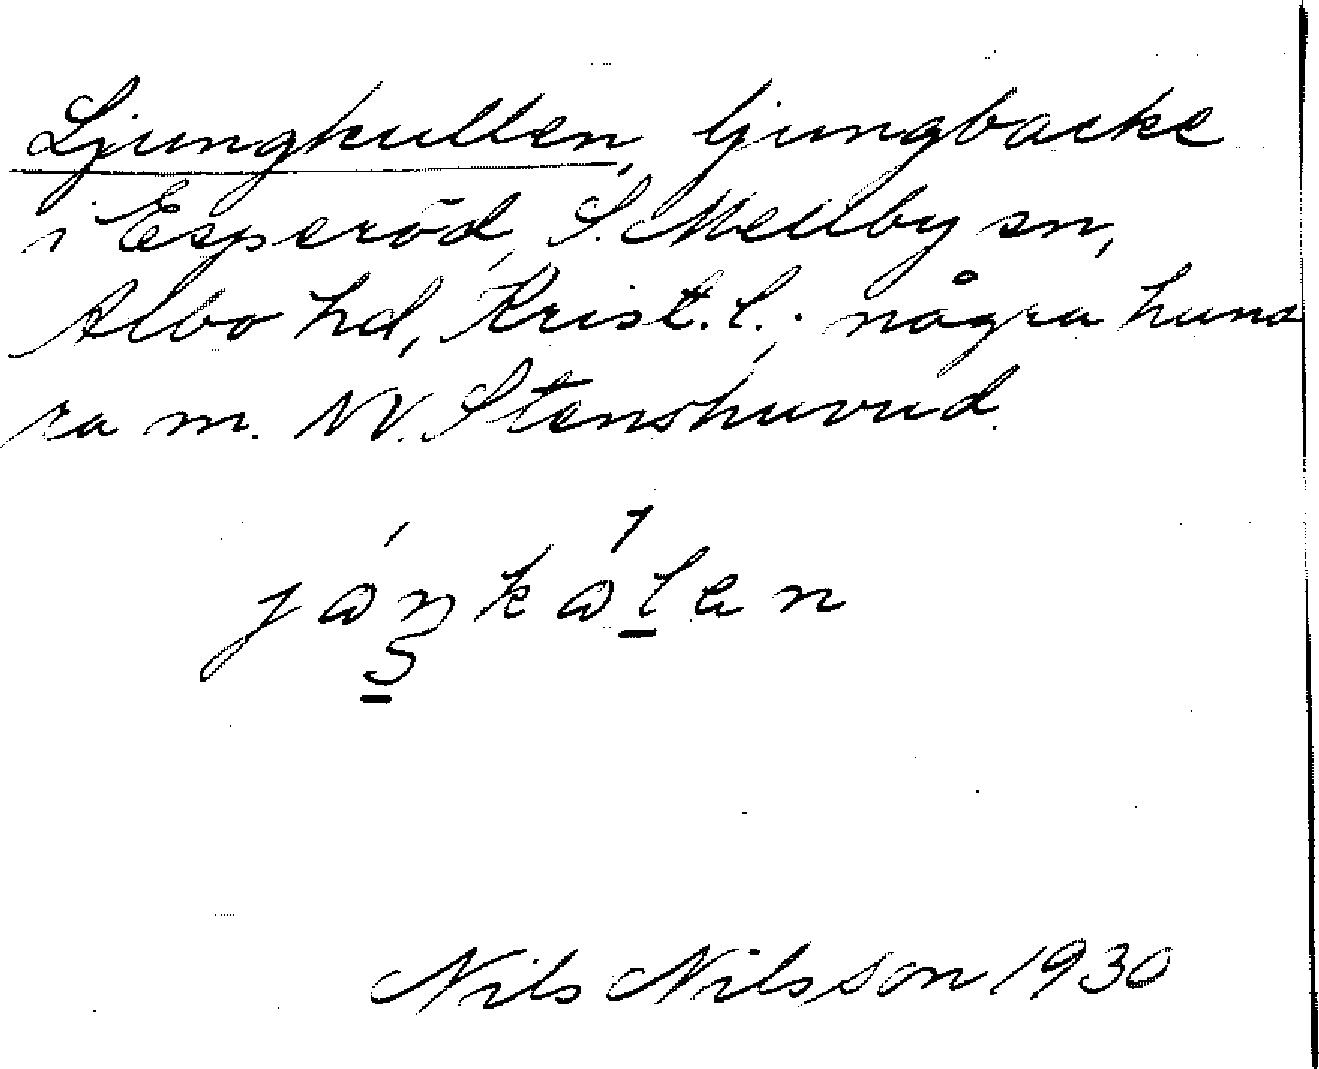 Ljungkullen, ljungbacke
i Esperöd, S. Mellby sn,
Albo hd, Krist. l.; några hund
ra m. NV. Stenshuvud.
jåŋkålen
Nils Nilsson 1930